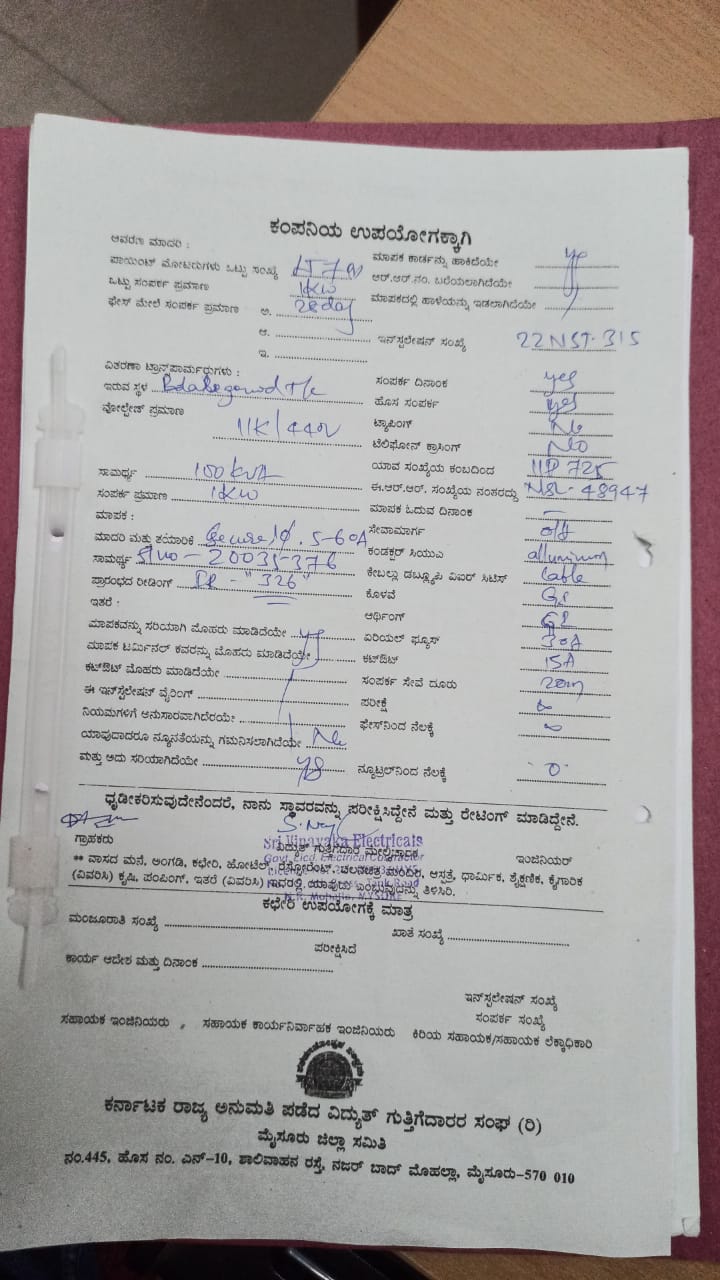 ಕಂಪನಿಯ ಉಪಯೋಗಕ್ಕಾಗಿ
ಆವರಣ ಮಾದರಿ :
ಮಾಪಕ ಕಾರ್ಡನ್ನು ಹಾಕಿದೆಯೇ
ಪಾಯಿಂಟ್ ಮೋಟರುಗಳು ಒಟ್ಟು ಸಂಖ್ಯೆ
ಆರ್.ಆರ್.ನಂ. ಬರೆಯಲಾಗಿದೆಯೇ
ಒಟ್ಟು ಸಂಪರ್ಕ ಪ್ರಮಾಣ 1KW
ಮಾಪಕದಲ್ಲಿ ಹಾಳೆಯನ್ನು ಇಡಲಾಗಿದೆಯೇ
ಫೇಸ್ ಮೇಲೆ ಸಂಪರ್ಕ ಪ್ರಮಾಣ ಅ. 28day
ಆ.
ಇನ್‌ಸ್ಟಲೇಷನ್ ಸಂಖ್ಯೆ 22NST-315
ಇ.
ವಿತರಣಾ ಟ್ರಾನ್ಸ್‌ಪಾರ್ಮರುಗಳು :
ಸಂಪರ್ಕ ದಿನಾಂಕ yes
ಇರುವ ಸ್ಥಳ
ಹೊಸ ಸಂಪರ್ಕ yes
ವೋಲ್ಟೇಜ್ ಪ್ರಮಾಣ 11K/440V
ಟ್ಯಾಪಿಂಗ್ No
ಟೆಲಿಫೋನ್ ಕ್ರಾಸಿಂಗ್ No
ಸಾಮರ್ಥ್ಯ 100 KVA
ಯಾವ ಸಂಖ್ಯೆಯ ಕಂಬದಿಂದ 11P 725
ಸಂಪರ್ಕ ಪ್ರಮಾಣ 1KW
ಈ.ಆರ್.ಆರ್. ಸಂಖ್ಯೆಯ ನಂತರದ್ದು NSL-48947
ಮಾಪಕ :
ಮಾಪಕ ಓದುವ ದಿನಾಂಕ –
ಮಾದರಿ ಮತ್ತು ತಯಾರಿಕೆ Secure 1Ø. 5-60A
ಸೇವಾಮಾರ್ಗ
ಸಾಮರ್ಥ್ಯ Sl no - 20035-376
ಕಂಡಕ್ಟರ್ ಸಿಯುಎ alluminum
ಪ್ರಾರಂಭದ ರೀಡಿಂಗ್ "326"
ಕೇಬಲ್ಲು ಡಬ್ಲ್ಯೂಪಿ ಎಐರ್ ಸಿಟಿಸ್ Cable
ಇತರೆ :
ಕೊಳವೆ GI
ಆರ್ಥಿಂಗ್ GI
ಮಾಪಕವನ್ನು ಸರಿಯಾಗಿ ಮೊಹರು ಮಾಡಿದೆಯೇ yes
ಏರಿಯಲ್ ಫ್ಯೂಸ್ 30A
ಮಾಪಕ ಟರ್ಮಿನಲ್ ಕವರನ್ನು ಮೊಹರು ಮಾಡಿದೆಯೇ
ಕಟ್‌ಔಟ್ 15A
ಕಟ್‌ಔಟ್ ಮೊಹರು ಮಾಡಿದೆಯೇ
ಸಂಪರ್ಕ ಸೇವೆ ದೂರು 20m
ಈ ಇನ್‌ಸ್ಟಲೇಷನ್ ವೈರಿಂಗ್
ಪರೀಕ್ಷೆ ∞
ನಿಯಮಗಳಿಗೆ ಅನುಸಾರವಾಗಿದೆರಯೇ
ಫೇಸ್‌ನಿಂದ ನೆಲಕ್ಕೆ ∞
ಯಾವುದಾದರೂ ನ್ಯೂನತೆಯನ್ನು ಗಮನಿಸಲಾಗಿದೆಯೇ No
ಮತ್ತು ಅದು ಸರಿಯಾಗಿದೆಯೇ yes
ನ್ಯೂಟ್ರಲ್‌ನಿಂದ ನೆಲಕ್ಕೆ 0
ಧೃಡೀಕರಿಸುವುದೇನೆಂದರೆ, ನಾನು ಸ್ಥಾವರವನ್ನು ಪರೀಕ್ಷಿಸಿದ್ದೇನೆ ಮತ್ತು ರೇಟಿಂಗ್ ಮಾಡಿದ್ದೇನೆ.
Sri Vinayaka Electricals
ಗ್ರಾಹಕರು ವಿದ್ಯುತ್ ಗುತ್ತಿಗೆದಾರ ಮೇಲ್ವಿಚಾರಕ ಇಂಜಿನಿಯರ್
Govt. Licd. Electrical Contractor
** ವಾಸದ ಮನೆ, ಅಂಗಡಿ, ಕಛೇರಿ, ಹೋಟೆಲ್, ರೆಸ್ಟೋರೆಂಟ್, ಚಲನಚಿತ್ರ ಮಂದಿರ, ಆಸ್ಪತ್ರೆ, ಧಾರ್ಮಿಕ, ಶೈಕ್ಷಣಿಕ, ಕೈಗಾರಿಕ
(ವಿವರಿಸಿ) ಕೃಷಿ, ಪಂಪಿಂಗ್, ಇತರೆ (ವಿವರಿಸಿ) ಇವರಲ್ಲಿ ಯಾವುದು ಎಂಬುವುದನ್ನು ತಿಳಿಸಿರಿ.
N.R. Mohalla, MYSORE
ಕಛೇರಿ ಉಪಯೋಗಕ್ಕೆ ಮಾತ್ರ
ಮಂಜೂರಾತಿ ಸಂಖ್ಯೆ
ಖಾತೆ ಸಂಖ್ಯೆ
ಪರೀಕ್ಷಿಸಿದೆ
ಕಾರ್ಯ ಆದೇಶ ಮತ್ತು ದಿನಾಂಕ
ಇನ್‌ಸ್ಟಲೇಷನ್ ಸಂಖ್ಯೆ
ಸಂಪರ್ಕ ಸಂಖ್ಯೆ
ಸಹಾಯಕ ಇಂಜಿನಿಯರು , ಸಹಾಯಕ ಕಾರ್ಯನಿರ್ವಾಹಕ ಇಂಜಿನಿಯರು ಕಿರಿಯ ಸಹಾಯಕ/ಸಹಾಯಕ ಲೆಕ್ಕಾಧಿಕಾರಿ
ಕರ್ನಾಟಕ ರಾಜ್ಯ ಅನುಮತಿ ಪಡೆದ ವಿದ್ಯುತ್ ಗುತ್ತಿಗೆದಾರರ ಸಂಘ (ರಿ)
ಮೈಸೂರು ಜಿಲ್ಲಾ ಸಮಿತಿ
ನಂ.445, ಹೊಸ ನಂ. ಎನ್–10, ಶಾಲಿವಾಹನ ರಸ್ತೆ, ನಜರ್ ಬಾದ್ ಮೊಹಲ್ಲಾ, ಮೈಸೂರು–570 010